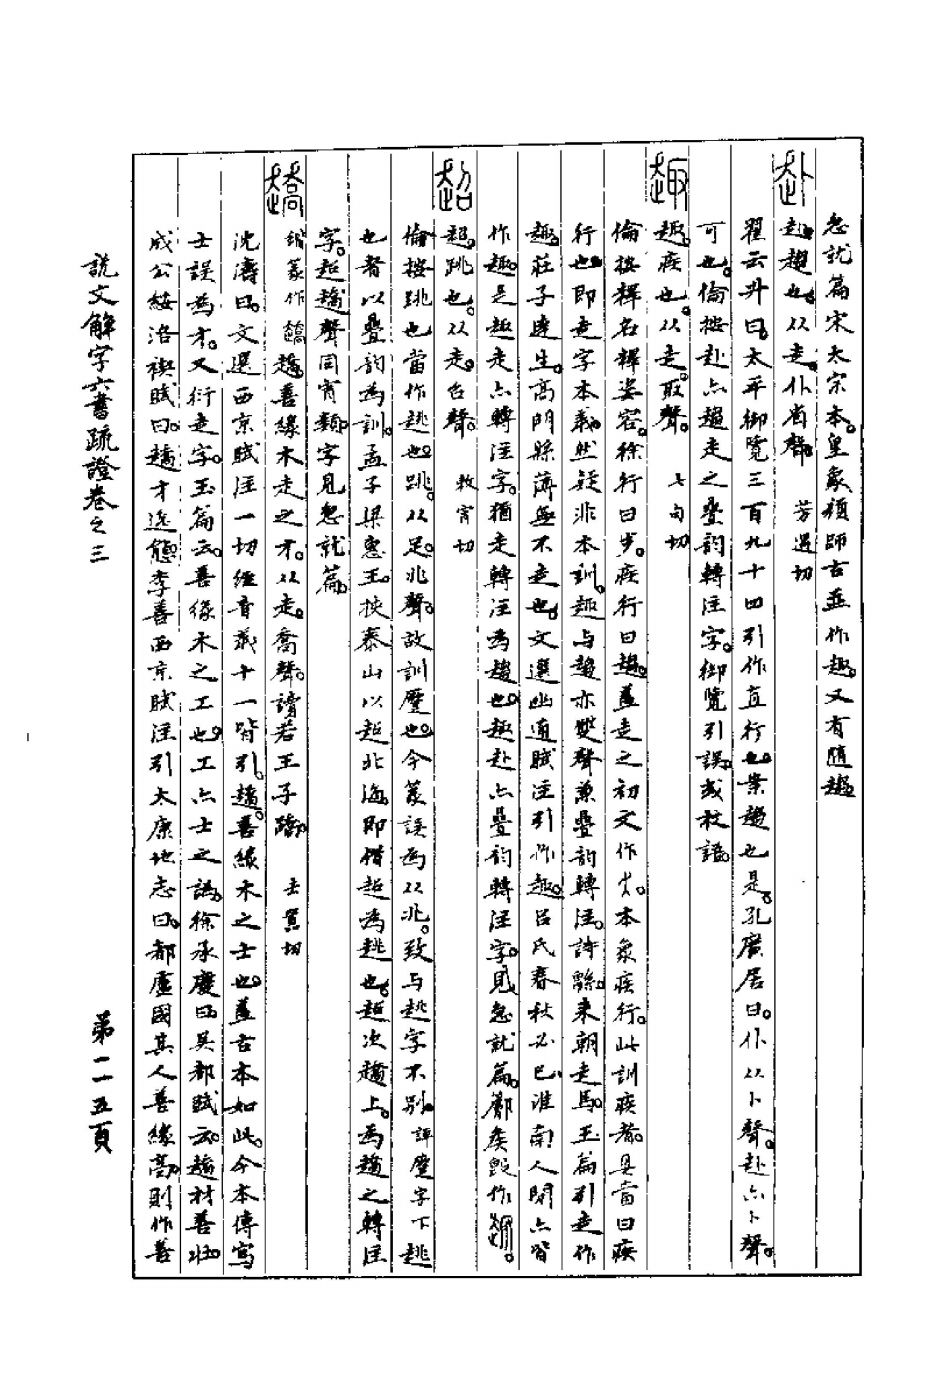 急就篇宋太宗本皇象顏師古並作趨。又有隨趨
赴
趨也。从走。仆省聲。 芳遇切
翟云升曰。太平御覽三百九十四引作直行也。案趨也是。孔廣居曰。仆从卜聲。赴亦卜聲。
可也。倫按赴亦趨走之疊韵轉注字。御覽引誤。或校語。
趣
趣。疾也。从走。取聲。 七句切
倫按釋名釋姿容。徐行曰步。疾行曰趨。蓋走之初文作夭。本象疾行。此訓疾者。具當曰疾
行也。即走字本義。然疑非本訓。趣与趨亦雙聲兼疊韵轉注。詩緜。来朝走馬。玉篇引走作
趣。莊子達生。高門縣薄無不走也。文選幽通賦注引作趣。呂氏春秋必己淮南人閒亦皆
作趣。是趣走亦轉注字。猶走轉注為趨也。趣赴亦疊韵轉注字。見急就篇。鄘矦𣪘作
超
超。跳也。从走。召聲。 敕宵切
倫按跳也當作趒也。跳从足。兆聲。故訓蹷也。今篆誤為从兆。致与趒字不別。詳蹷字下趒
也者以疊韵為訓。孟子梁惠王。挾泰山以超北海。即借超為趒也。超次趨上。為趨之轉注
字。超趫聲同宵類。字見急就篇。
趫
鍇篆作趫。趫。善緣木走之才。从走。喬聲。讀若王子蹻。 去嚻切
沈濤曰。文選西京賦注一切經音義十一皆引。趫。善緣木之士也。蓋古本如此。今本傳寫
士誤為才。又衍走字。玉篇云。善緣木之工也。工亦士之譌。徐承慶曰。吳都賦云。趫材善壯。
成公綏洛禊賦曰。趫才逸態。李善西京賦注引太康地志曰。都盧國其人善緣高。則作善
說文解字六書疏證卷之三
第一一五頁